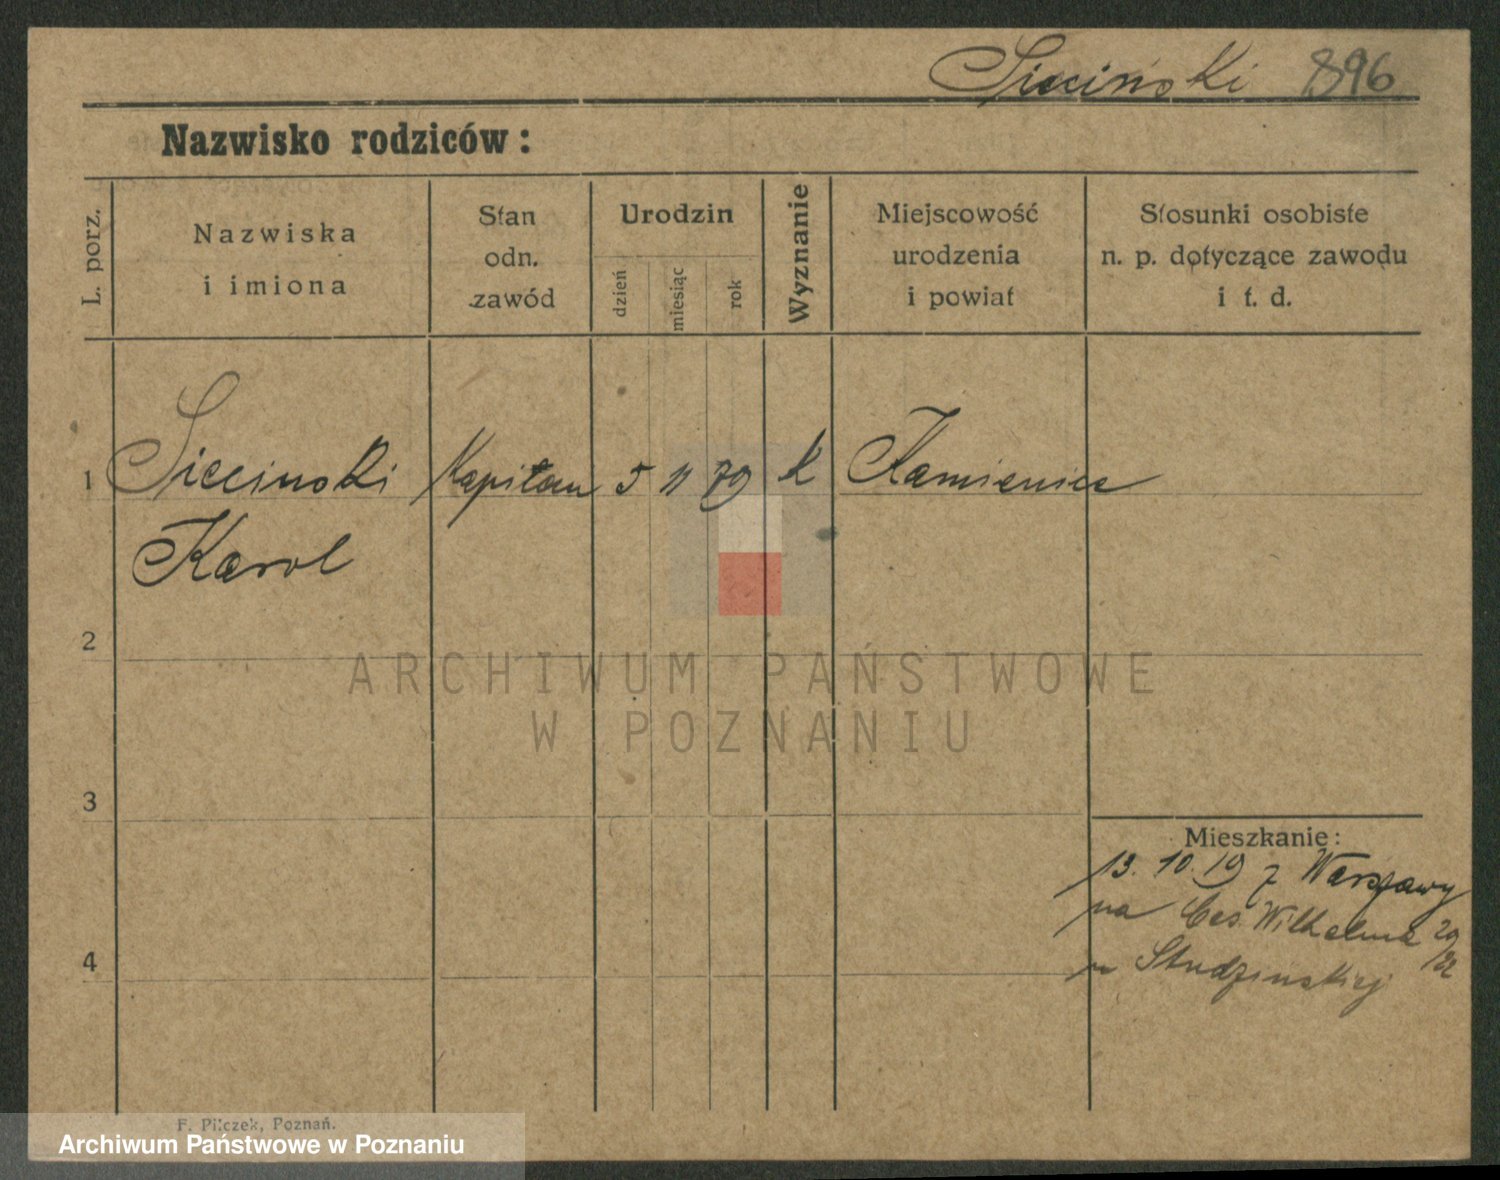 Sieciński 896
Nazwisko rodziców:
L. porz.
Nazwiska
i imiona
Stan
odn.
zawód
Urodzin
dzień
miesiąc
rok
Wyznanie
Miejscowość
urodzenia
i powiat
Stosunki osobiste
n. p. dotyczące zawodu
i t. d.
1 Siecinski Kapitan 5 11 79 k Kamienica
Karol
2
ARCHIWUM PAŃSTWOWE
W POZNANIU
3
Mieszkanie:
13. 10. 19 z Warszawy
na Ces. Wilhelma 29
u Studzińskiej
4
F. Pilczek, Poznań.
Archiwum Państwowe w Poznaniu